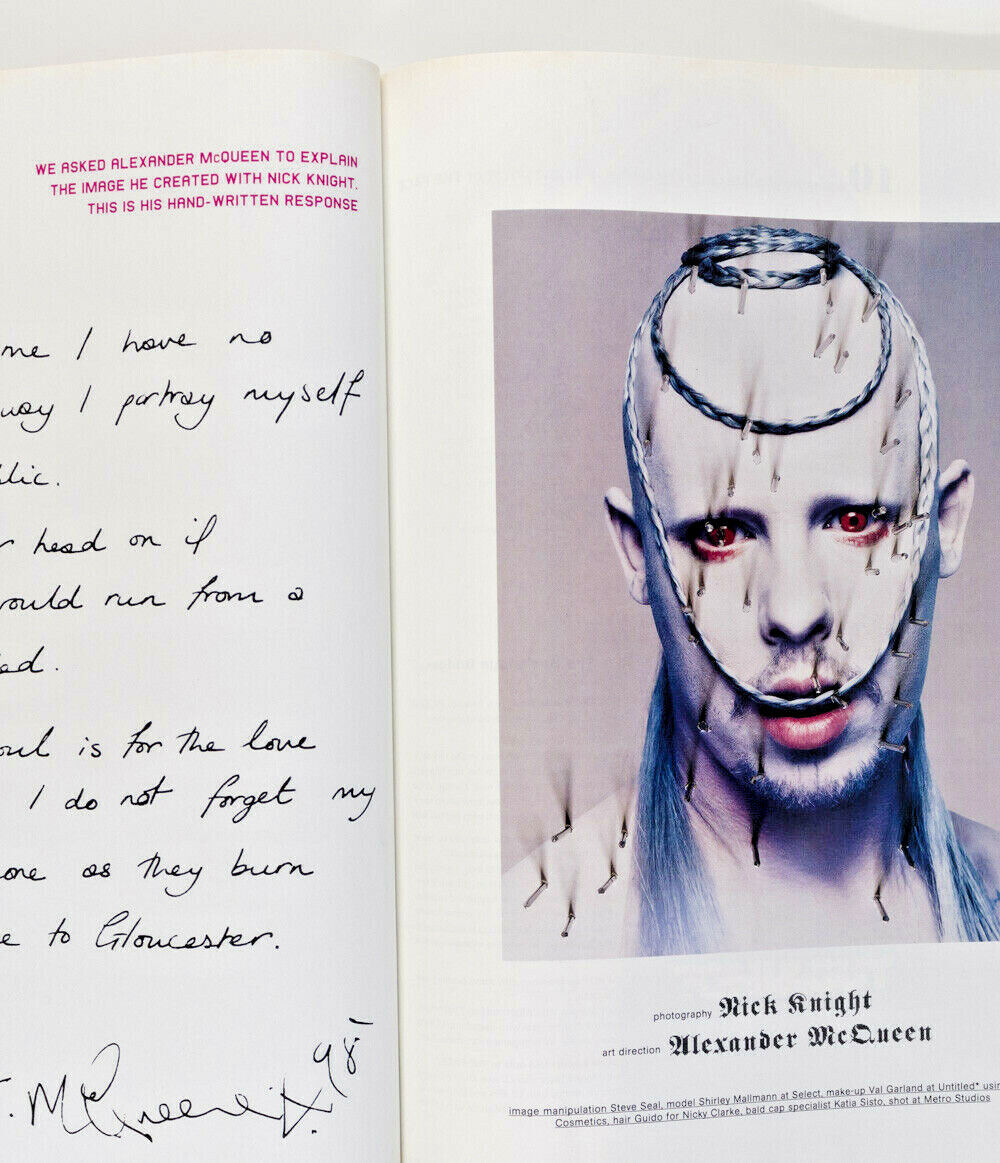 WE ASKED ALEXANDER McQUEEN TO EXPLAIN
THE IMAGE HE CREATED WITH NICK KNIGHT.
THIS IS HIS HAND-WRITTEN RESPONSE
me I have no
way I portray myself
lic.
r head on if
would run from a
ed.
oul is for the love
I do not forget my
one as they burn
e to Gloucester.
McQueen 98
photography Nick Knight
art direction Alexander McQueen
image manipulation Steve Seal, model Shirley Mallmann at Select, make-up Val Garland at Untitled* usin
Cosmetics, hair Guido for Nicky Clarke, bald cap specialist Katia Sisto, shot at Metro Studios